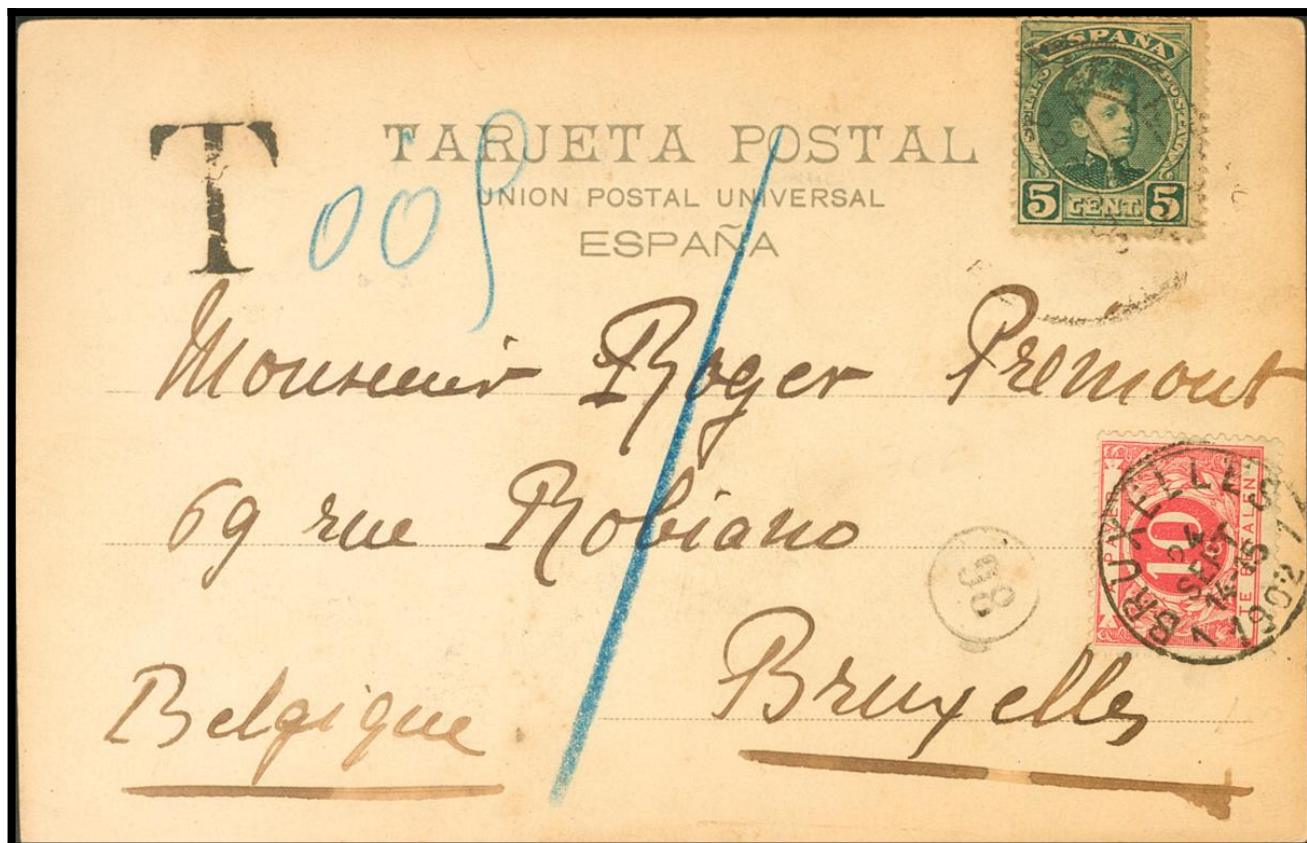 T
TARJETA POSTAL
UNION POSTAL UNIVERSAL
ESPAÑA
005
ESPAÑA
5 CENT. 5
Monsieur Roger Premont
69 rue Robiano
Bruxelles
Belgique
98
10
BRUXELLES 1
24
SEPT
14-15
1902